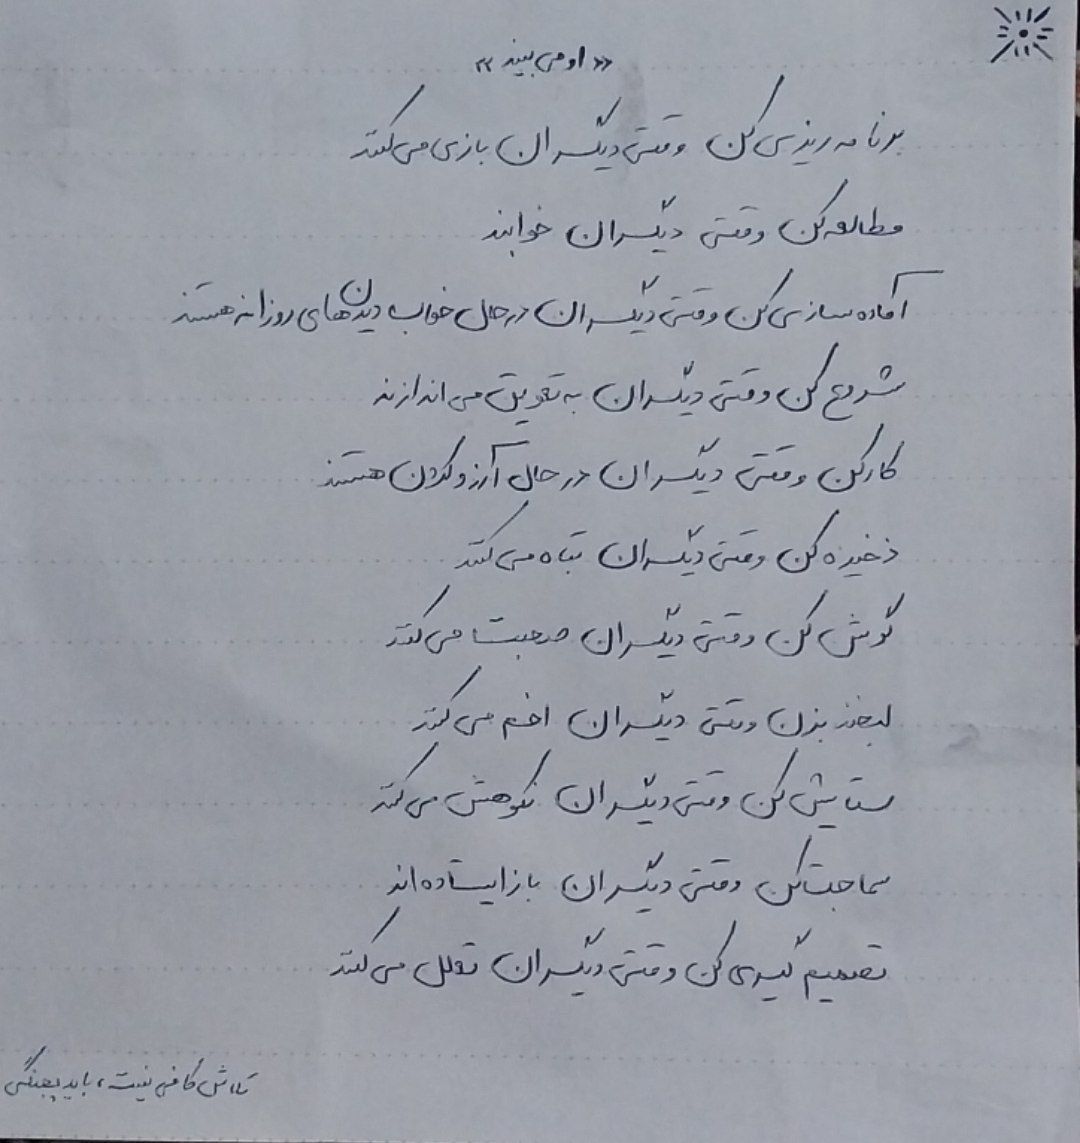 «او می بیند»
برنامه ریزی کن وقتی دیگران بازی می کنند
مطالعه کن وقتی دیگران خوابند
آماده سازی کن وقتی دیگران در حال خواب دیدن های روزانه هستند
شروع کن وقتی دیگران به تعویق می اندازند
کار کن وقتی دیگران در حال آرزو کردن هستند
ذخیره کن وقتی دیگران تباه می کنند
گوش کن وقتی دیگران صحبت می کنند
لبخند بزن وقتی دیگران اخم می کنند
ستایش کن وقتی دیگران نکوهش می کنند
سماجت کن وقتی دیگران باز ایستاده اند
تصمیم گیری کن وقتی دیگران تعلل می کنند
تلاش کافی نیست، باید بجنگی